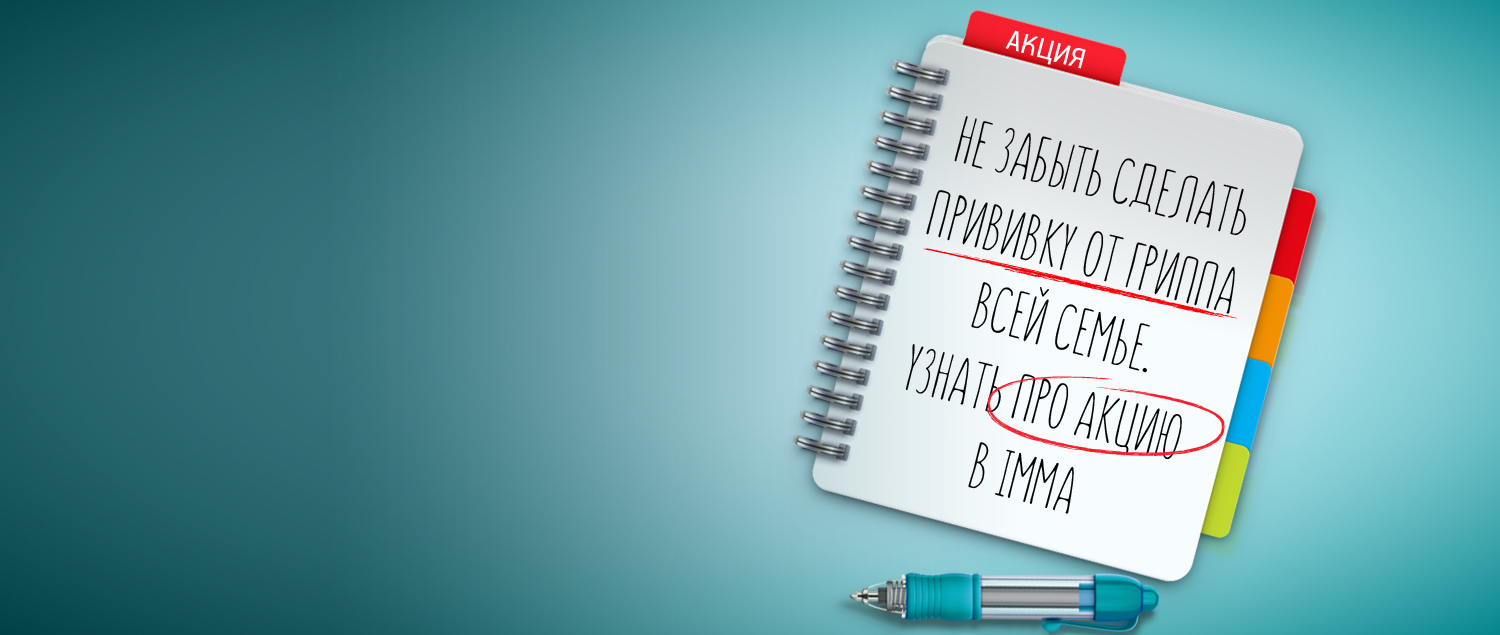 АКЦИЯ
НЕ ЗАБЫТЬ СДЕЛАТЬ
ПРИВИВКУ ОТ ГРИППА
ВСЕЙ СЕМЬЕ.
УЗНАТЬ ПРО АКЦИЮ
В IMMA